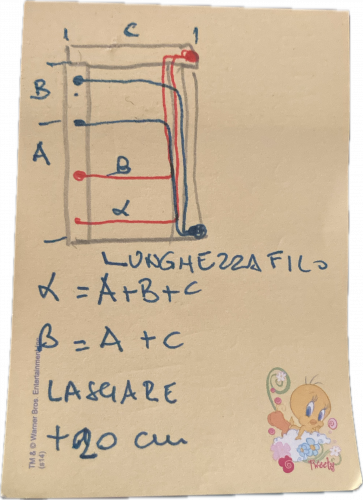 C
B
A
B
α
LUNGHEZZA FILO
α = A+B+C
B = A + C
LASCIARE
+20 cm
TM & © Warner Bros. Entertainment Inc.
(s14)
Tweety